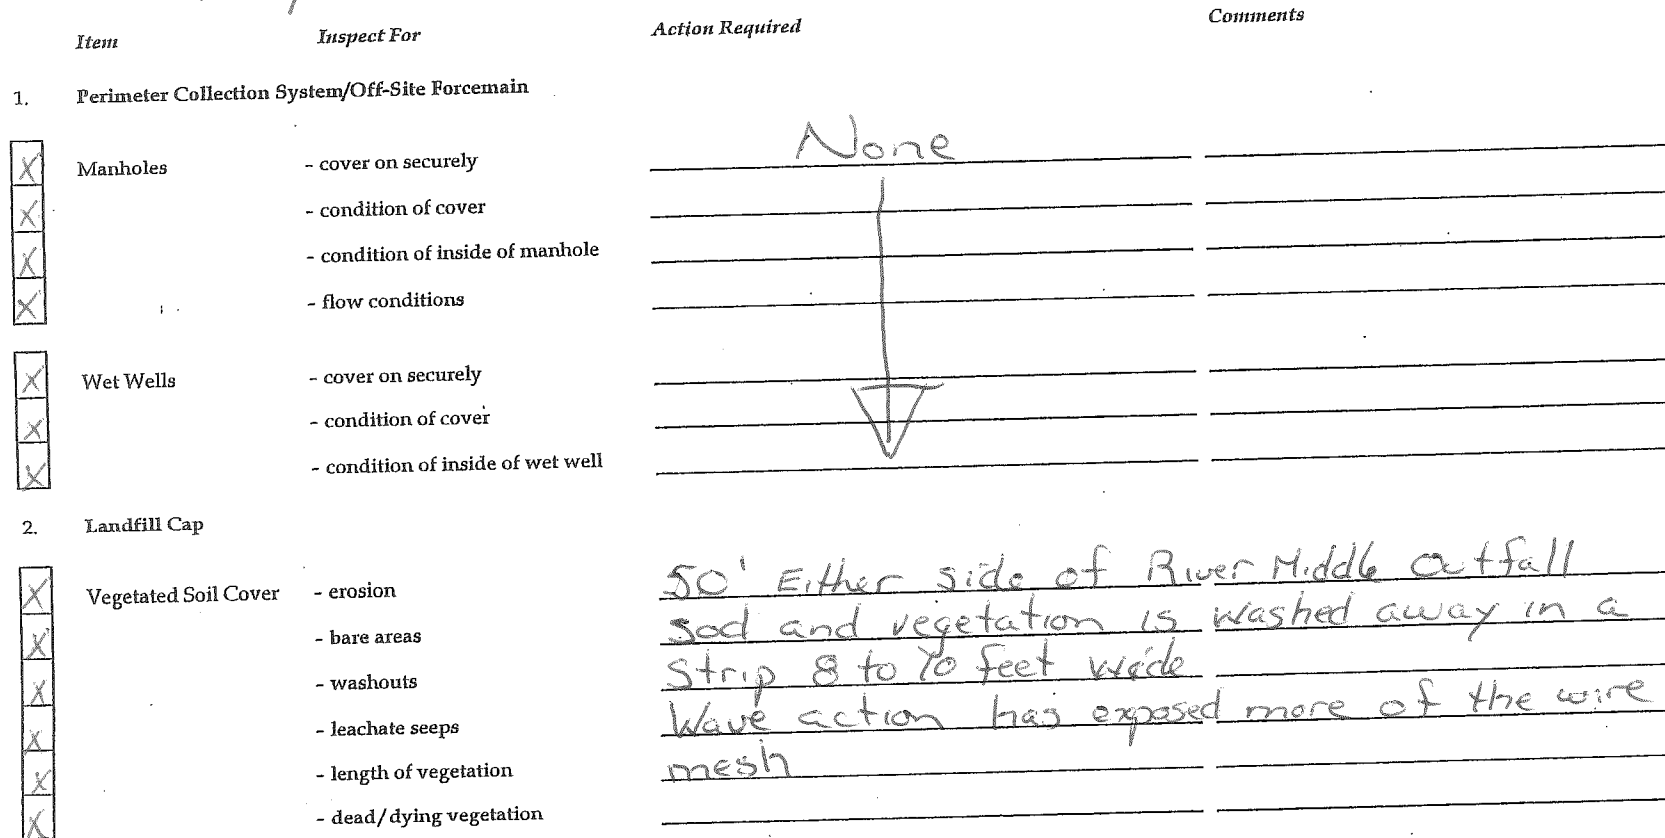 Item Inspect For Action Required Comments
1. Perimeter Collection System/Off-Site Forcemain
X Manholes - cover on securely None
X - condition of cover
X - condition of inside of manhole
X - flow conditions
X Wet Wells - cover on securely
X - condition of cover
X - condition of inside of wet well
2. Landfill Cap
X Vegetated Soil Cover - erosion 50' Either side of River Middle Outfall
X - bare areas sod and vegetation is washed away in a
X - washouts Strip 8 to 10 feet wide
X - leachate seeps Wave action has exposed more of the wire
X - length of vegetation mesh
X - dead/dying vegetation